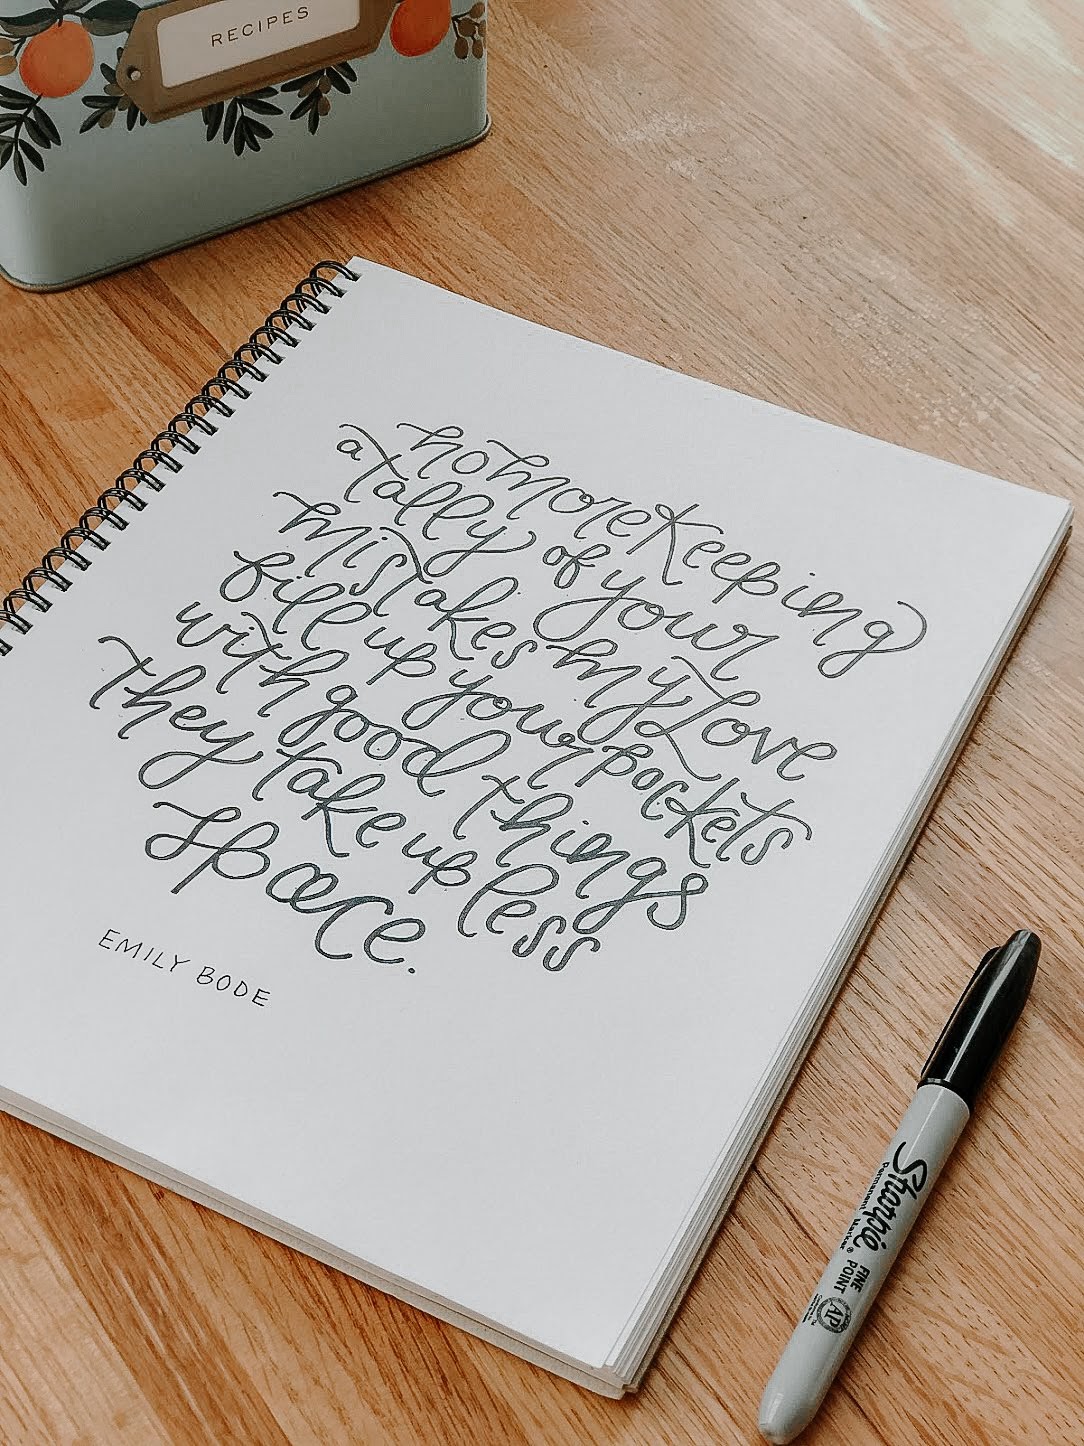 RECIPES
no more keeping
a tally of your
mistakes my love
fill up your pockets
with good things
they take up less
space.
EMILY BODE
Sharpie
Permanent Marker
FINE
POINT
AP